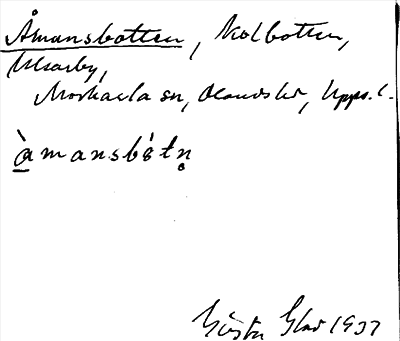 Åmansbotten, Kolbotten,
Ulvarby,
Morkarla sn, Olands hd, Upps. l.
åmansbòtn̥
Gösta Glad 1937